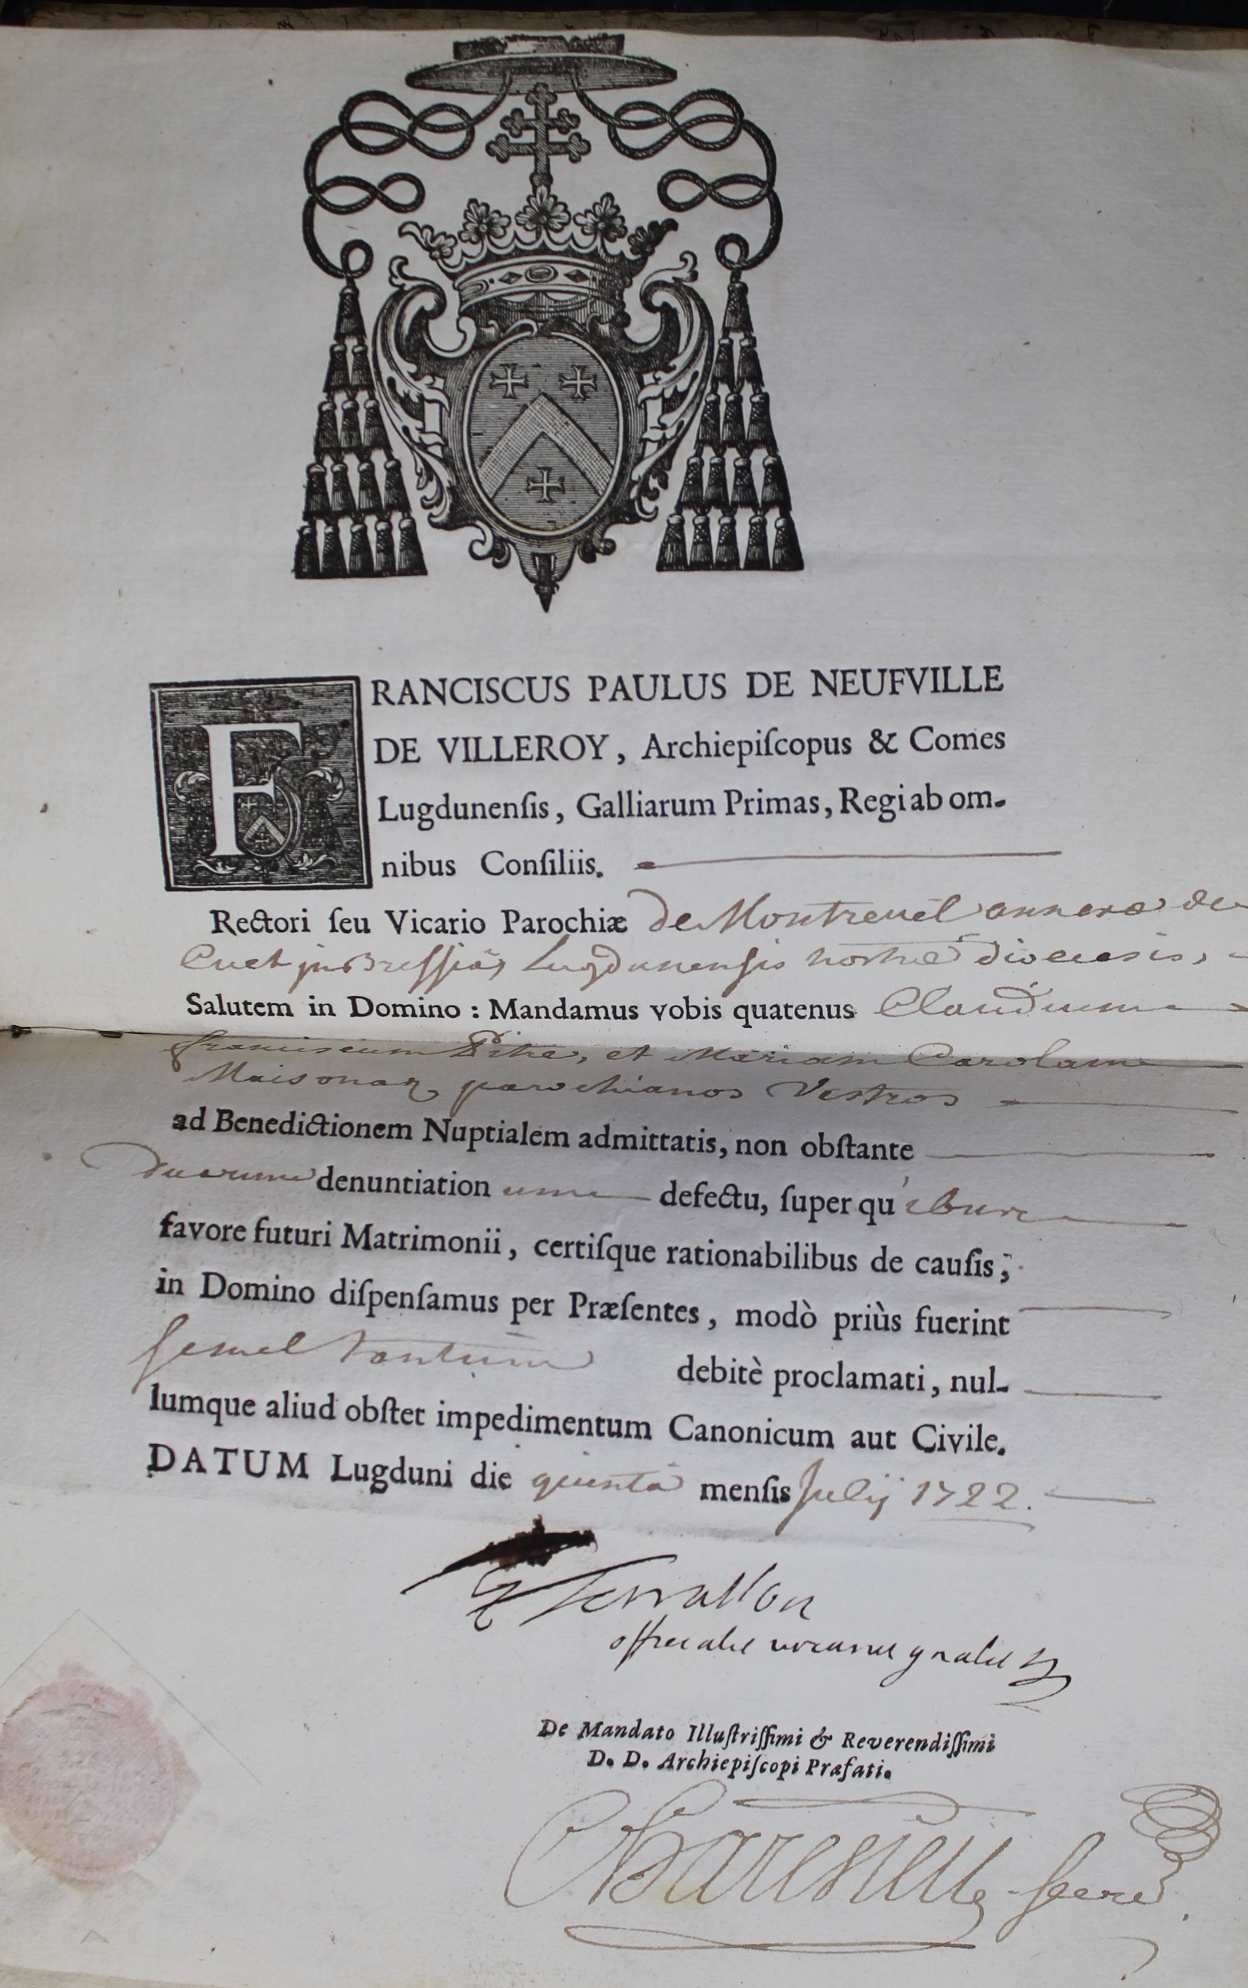 FRANCISCUS PAULUS DE NEUFVILLE
DE VILLEROY, Archiepiſcopus & Comes
Lugdunenſis, Galliarum Primas, Regi ab om-
nibus Conſiliis.
Rectori ſeu Vicario Parochiæ de Montrevel annexæ de
Cuet in Bressia, Lugdunensis nostræ diœcesis,
Salutem in Domino : Mandamus vobis quatenus Claudium
franciscum Pitre, et Mariam Carolam
Maisonar parochianos Vestros
ad Benedictionem Nuptialem admittatis, non obſtante
duarum denuntiation um defectu, ſuper qu ibus
favore futuri Matrimonii, certiſque rationabilibus de cauſis;
in Domino diſpenſamus per Præſentes, modò priùs fuerint
semel tantum debitè proclamati, nul-
lumque aliud obſtet impedimentum Canonicum aut Civile.
DATUM Lugduni die quintâ menſis Julij 1722.
Terrasson
vicarius gnalis
De Mandato Illuſtriſſimi & Reverendiſſimi
D. D. Archiepiſcopi Præfati.